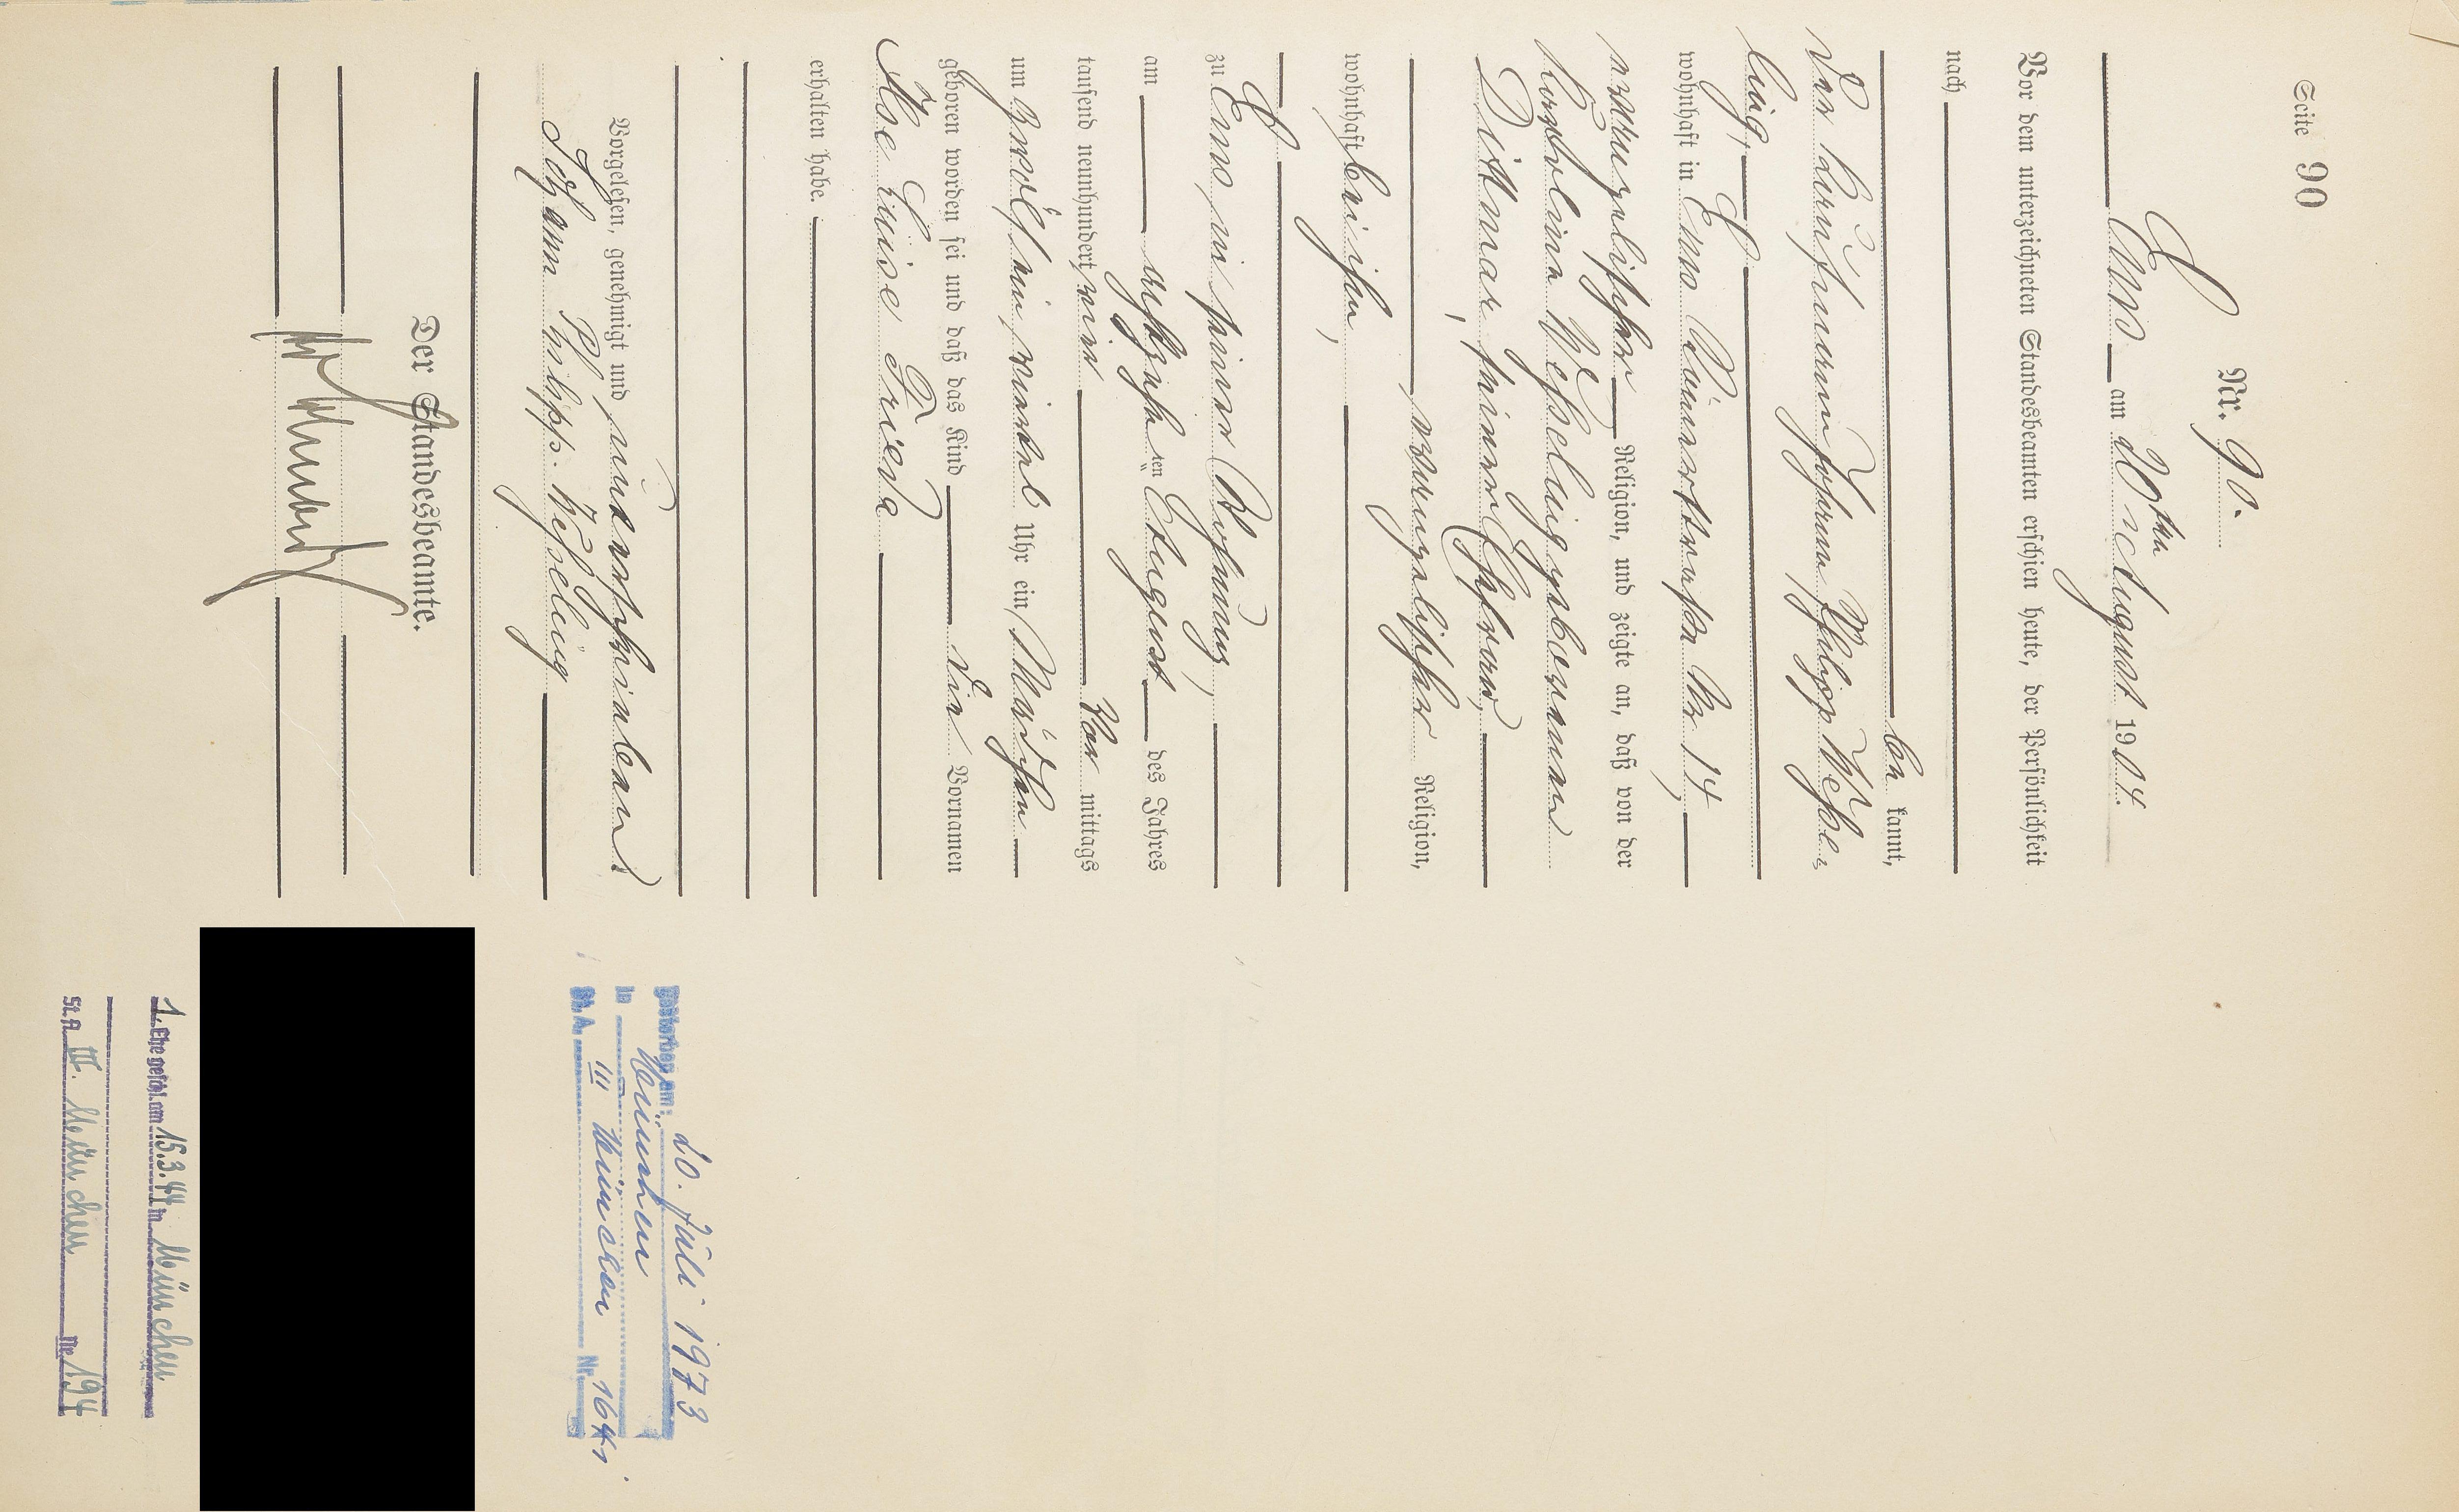 Seite 90
Nr. 90.
Ems am 20ten August 1904.
Vor dem unterzeichneten Standesbeamten erschien heute, der Persönlichkeit
nach
be kannt,
der Kaufmann Johann Philipp Weße-
ling,
wohnhaft in Ems Römerstraße Nr 14,
evangelischer Religion, und zeigte an, daß von der
Karoline Weßeling geborenen
Dittmar, seiner Ehefrau,
evangelischer Religion,
wohnhaft bei ihm,
zu Ems, in seiner Wohnung,
am achtzehn ten August des Jahres
tausend neunhundert vier Vor mittags
um zwölf ein viertel Uhr ein Mädchen
geboren worden sei und daß das Kind die Vornamen
Ilse Luise Frieda
erhalten habe.
Vorgelesen, genehmigt und unterschrieben
Johann Philipp. Weßeling
Der Standesbeamte.
Gestorben am: 20. Juli 1973
in München
St. A. III München Nr. 1641
1. Ehe geschl. am 15.3.44 in München
St.A III. München Nr. 194